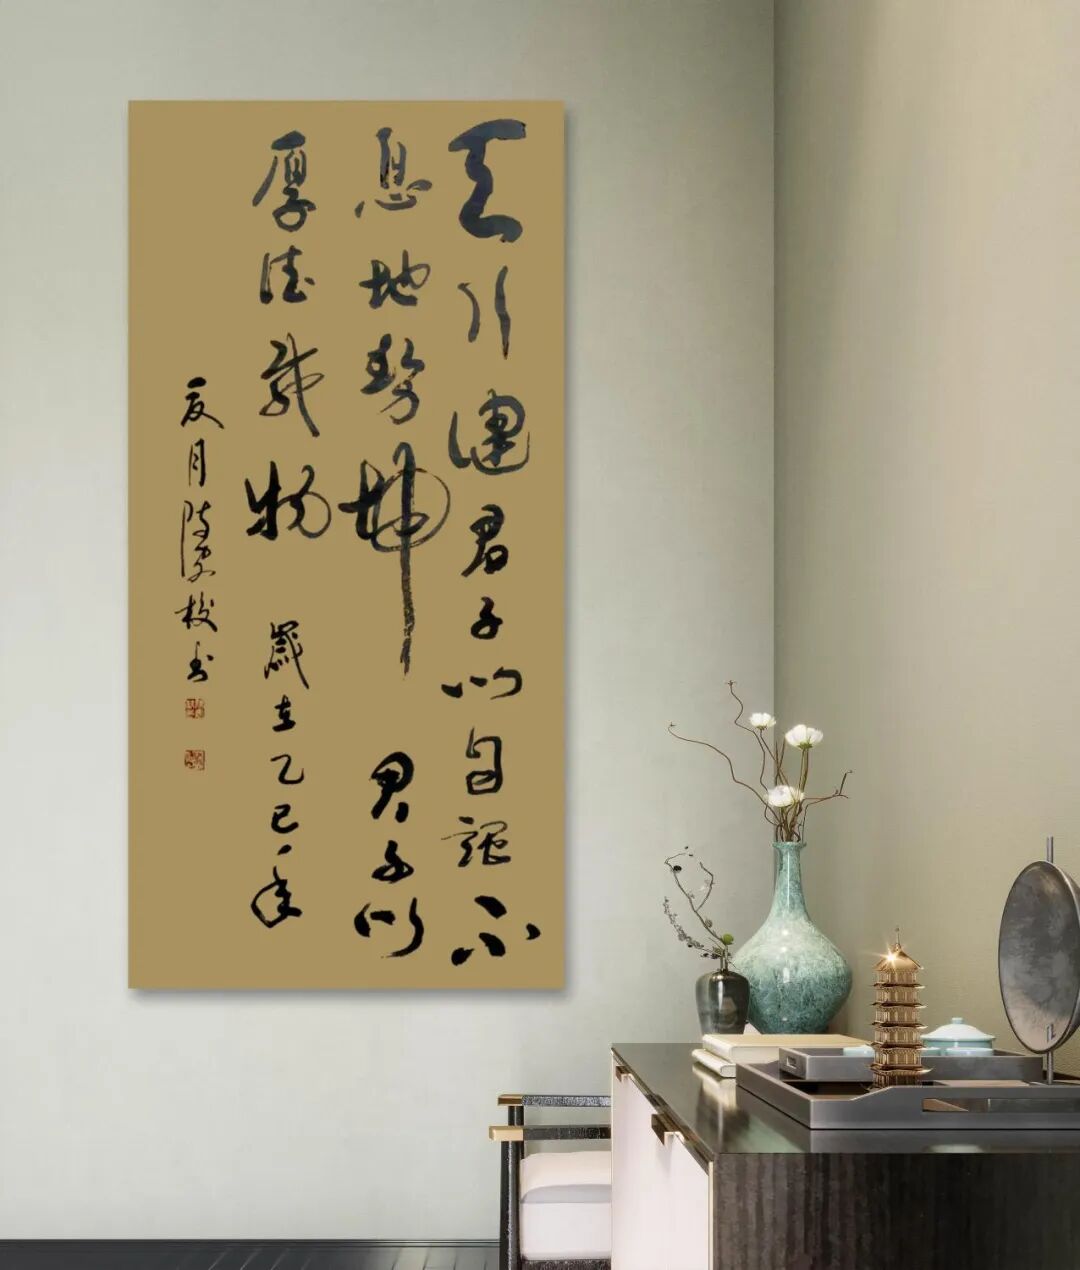 天行健君子以自强不
息地势坤君子以
厚德载物 歲在乙巳年
夏月